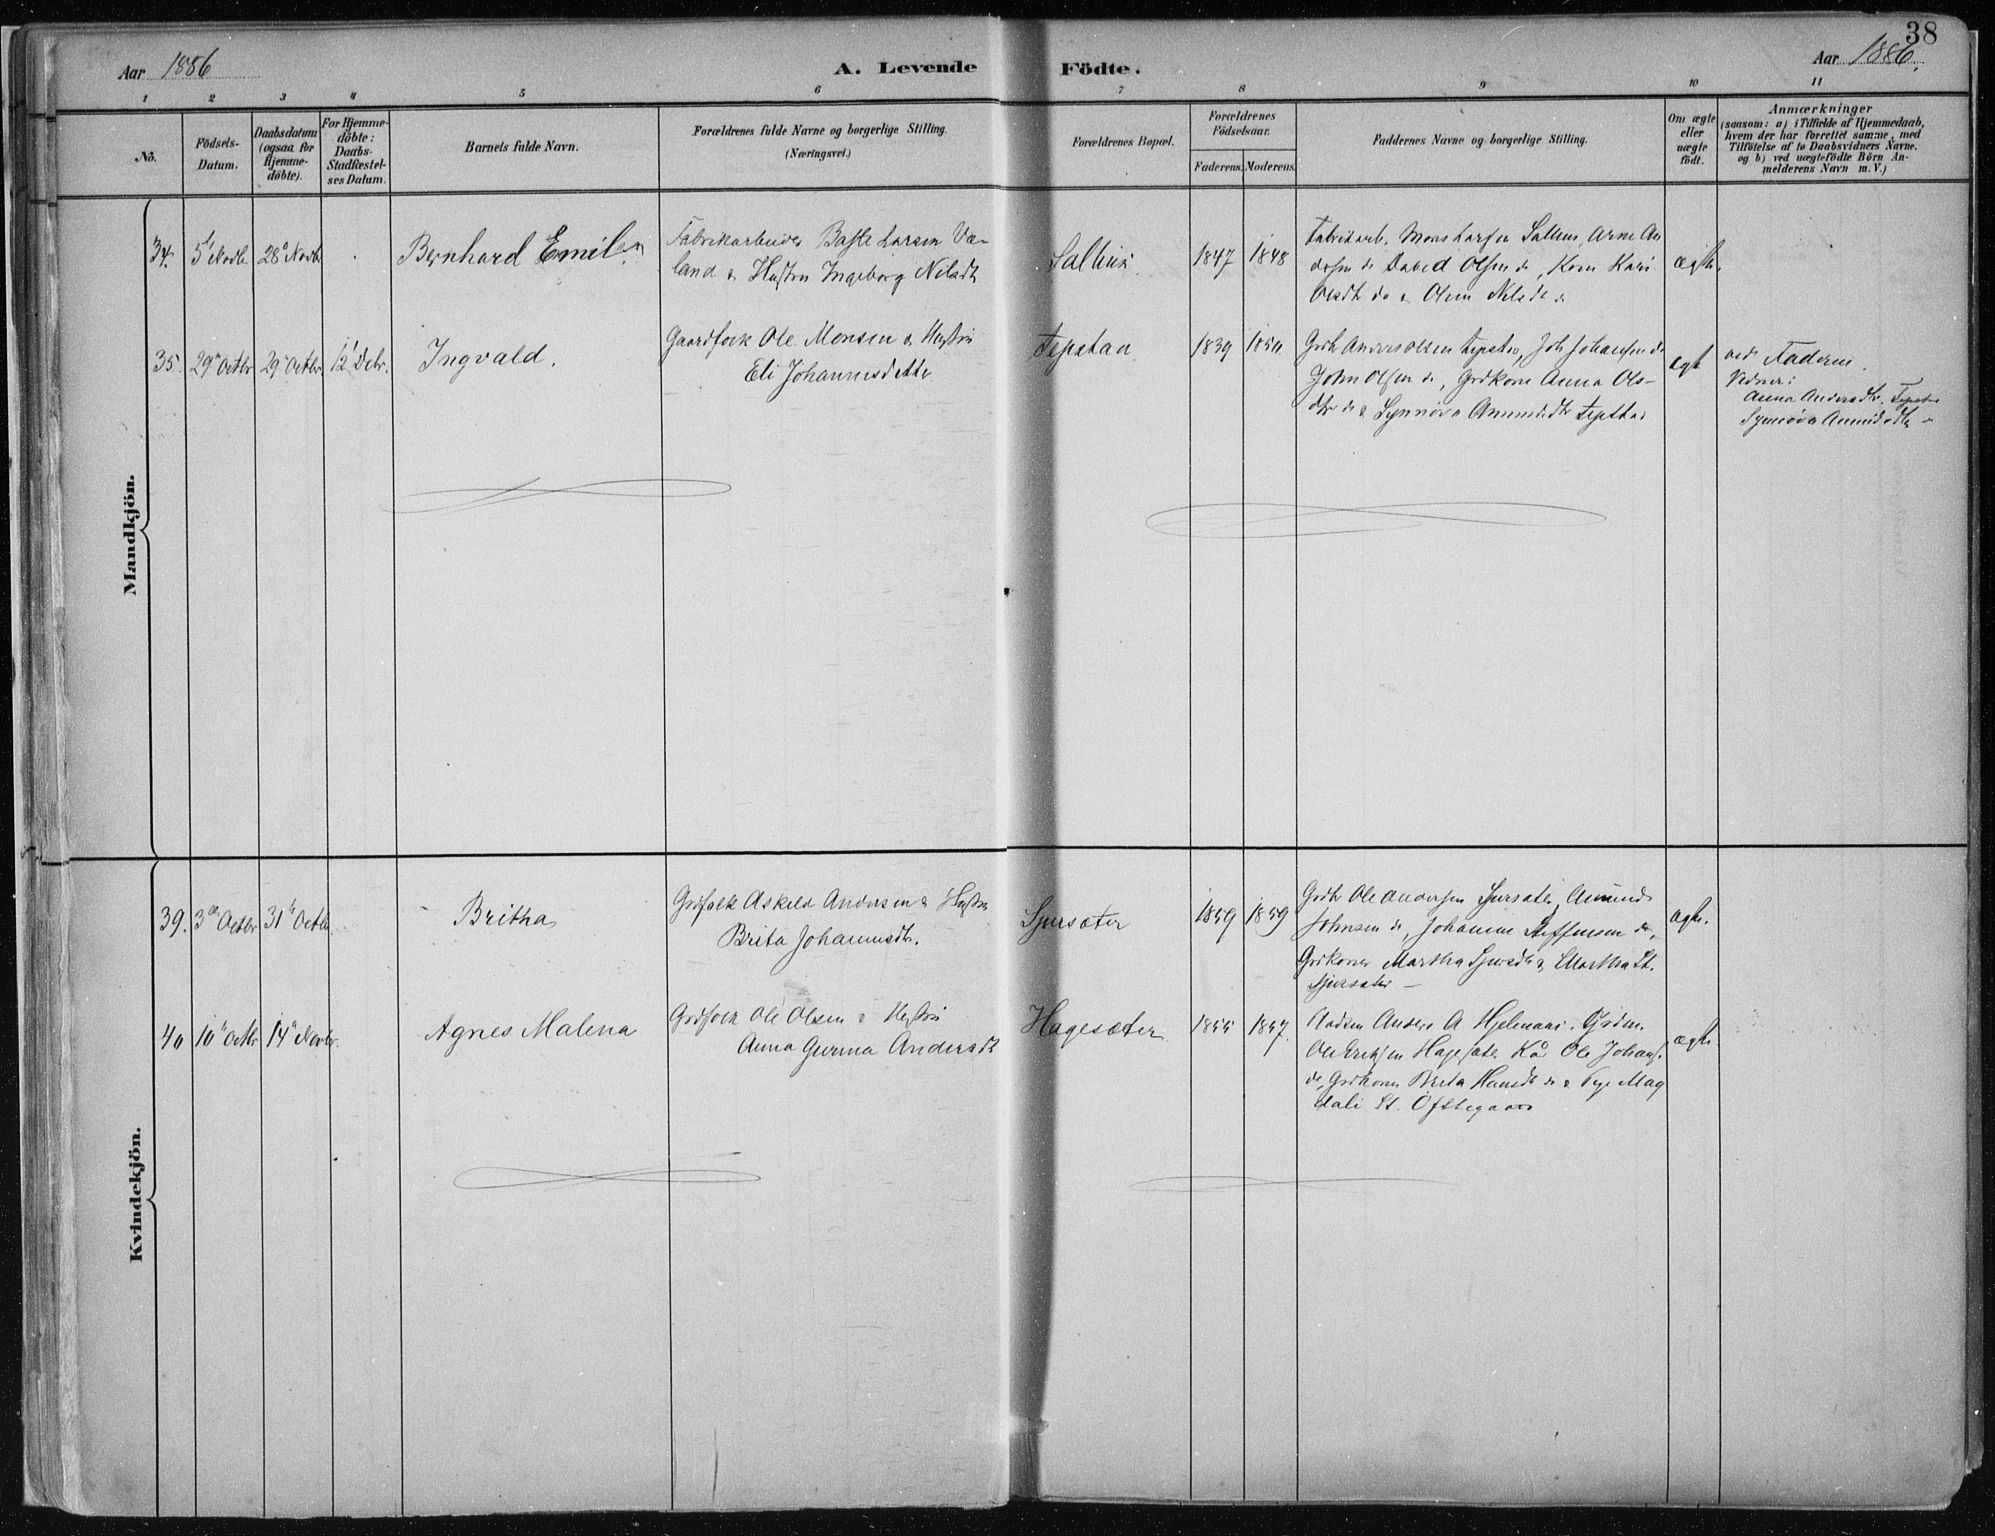 38
Aar 1886
A. Levende Födte.
Aar 1886.
1 2 3 4 5 6 7 8 9 10 11
No.
Födsels-Datum.
Daabsdatum (ogsaa for Hjemme-döbte).
For Hjemme-döbte: Daabs-Stadfæstel-ses Datum.
Barnets fulde Navn.
Forældrenes fulde Navne og borgerlige Stilling.
(Næringsvei.)
Forældrenes Bopæl.
Forældrenes Födselsaar.
Faderens. Moderens.
Faddernes Navne og borgerlige Stilling.
Om ægte eller uægte födt.
Anmærkninger
(saasom: a) i Tilfælde af Hjemmedaab,
hvem der har forrettet samme, med
Tilföielse af to Daabsvidners Navne.
og b) ved uægtefödte Börn An-
melderens Navn m. V.)
Mandkjön.
34. 5 Novbr 28 Novbr Bernhard Emil
Fabrikarbeider Larsen
land & Hustru Ingeborg Nilsdtr
Salhus. 1847 1848
Fabrikarb. Mons Larsen Salhus, Arne An
dersen do David Olsen do, Kone Kari
Olsdtr do & Nilsdtr do
ægte.
35. 29 Octbr 29 Octbr 12 Debr. Ingvald.
Gaardfolk Ole Monsen & Hustru
Eli Johannesdatter
Tepstad 1839 1850
Anders Olsen Tepstad, Joh Johansen do
John Olsen do, Grdkone Anna Ols-
dtr do & Synnöva Amundsdtr Tepstad
ægt
ved Faderen.
Vidner:
Anna Andersdtr. Tepstad
Synnöva Amundsdtr
Kvindekjön.
39. 3 Octbr 31 Octbr Britha
Grdfolk Askeld Andersen & Hustru
Brita Johannesdtr.
Sjursæter 1859 1859
Grdbr Ole Andersen Sjursæter, Amund
Johnsen do, Johannes Steffensen do,
Grdkoner Martha Sjursdtr & Martha St.
Sjursæter
ægte.
40 10 Octbr 14 Novbr. Agnes Malena
Grdfolk Ole Olsen & Hustru
Anna Gurina Andersdtr
Hagesæter 1855 1857.
Anders A Hjelmaas.
Ole Eriksen Hagesæter Ole Johans.
do, Grdkone Brita Hansdtr do & Pige Mag
dali St. Oftegaard
ægte